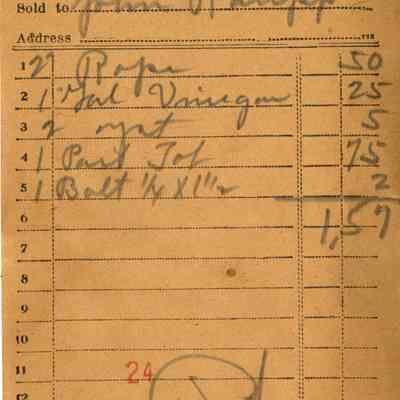 Sold to John
Address
1 2 Rope 50
2 1 Gal Vinegar 25
3 2 oyst 5
4 1 Pail Tof 75
5 1 Bolt 1/4 X 1 1/2 2
6 1,57
7
8
9
10
11 24
12